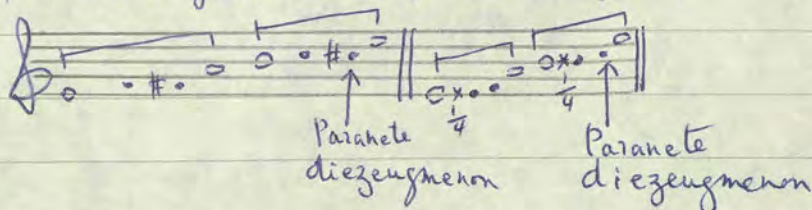 1/4
1/4
Paranete
diezeugmenon
Paranete
diezeugmenon